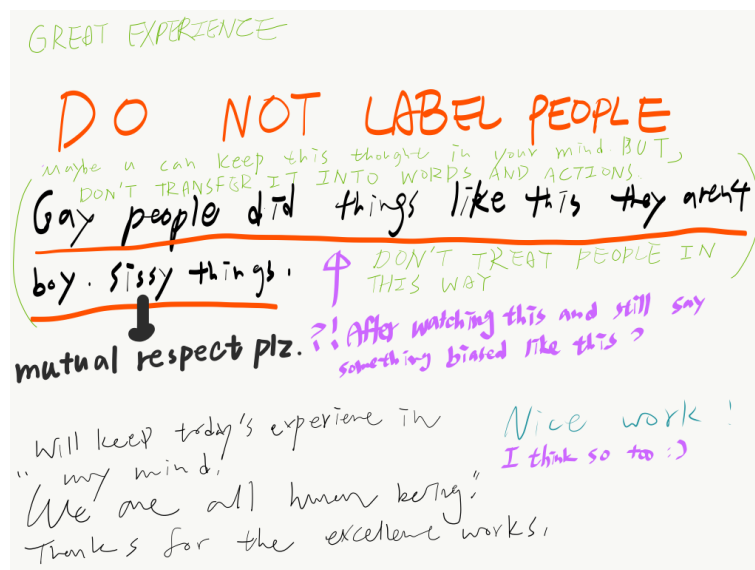 GREAT EXPERIENCE
DO NOT LABEL PEOPLE
Maybe u can keep this thought in your mind. BUT,
DON'T TRANSFER IT INTO WORDS AND ACTIONS.
Gay people did things like this they aren't
boy. sissy things.
DON'T TREAT PEOPLE IN
THIS WAY
mutual respect plz.
?! After watching this and still say
something biased like this?
Will keep today's experiene in
my mind.
"We are all human being."
Thanks for the excellene works.
Nice work!
I think so too :)